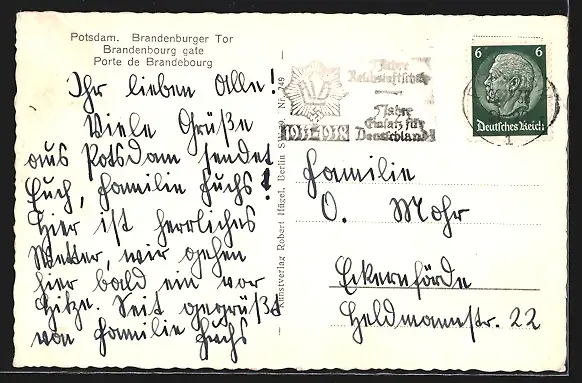 Potsdam. Brandenburger Tor
Brandenbourg gate
Porte de Brandebourg
Ihr lieben Alle!
Viele Grüße
aus Potsdam sendet
Euch, Familie Fuchs!
Hier ist herrliches
Wetter, wir gehen
hier bald ein vor
Hitze. Seit gegrüßt
von Familie Fuchs
Kunstverlag Robert Hügel, Berlin
5 Jahre
Reichsluftschutz
5 Jahre
Einsatz für
Deutschland!
RLB
1933-1938
6 6
Deutsches Reich
1
Familie
O. Mohr
Eckernförde
Heldmannstr. 22